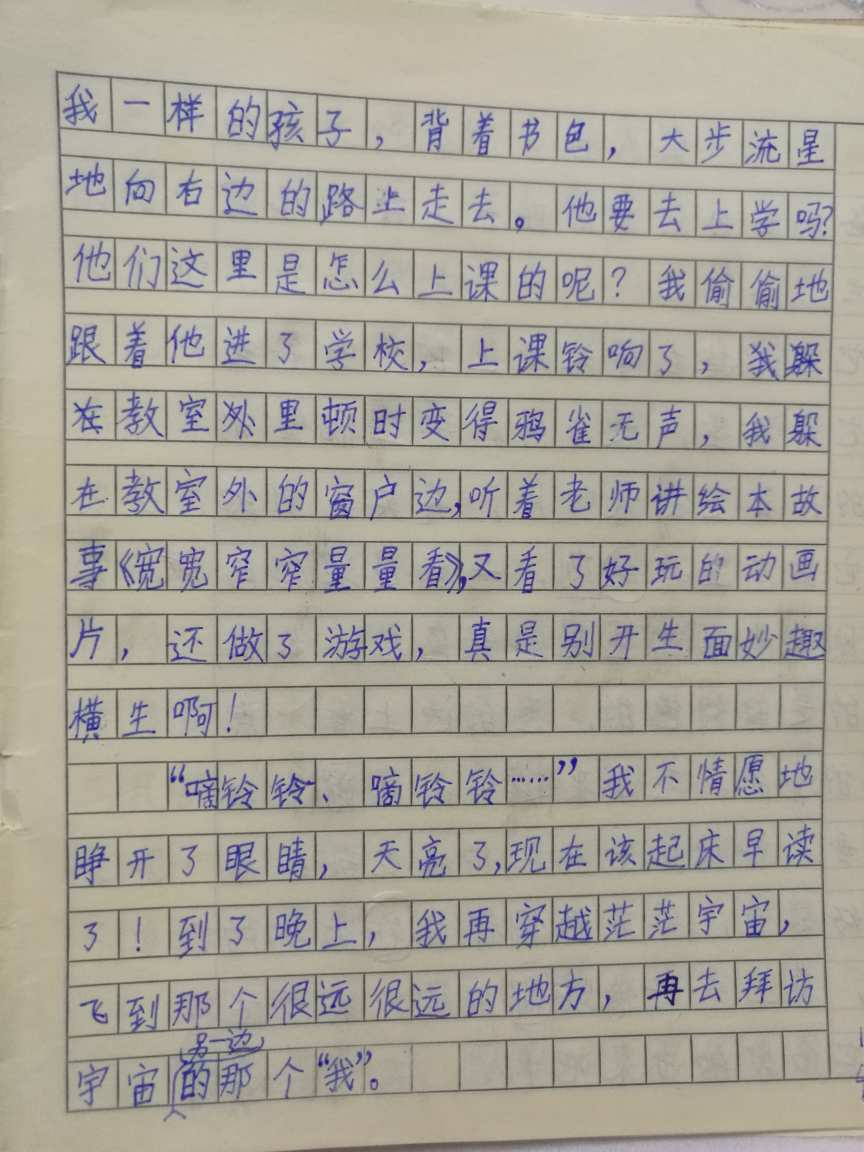 我一样的孩子，背着书包，大步流星
地向右边的路上走去。他要去上学吗?
他们这里是怎么上课的呢?我偷偷地
跟着他进了学校，上课铃响了，我躲
在教室外里顿时变得鸦雀无声，我躲
在教室外的窗户边,听着老师讲绘本故
事《宽宽窄窄量量看》,又看了好玩的动画
片，还做了游戏，真是别开生面妙趣
横生啊!
“嘀铃铃、嘀铃铃……”我不情愿地
睁开了眼睛，天亮了,现在该起床早读
了!到了晚上，我再穿越茫茫宇宙，
飞到那个很远很远的地方，再去拜访
宇宙另一边的那个“我”。